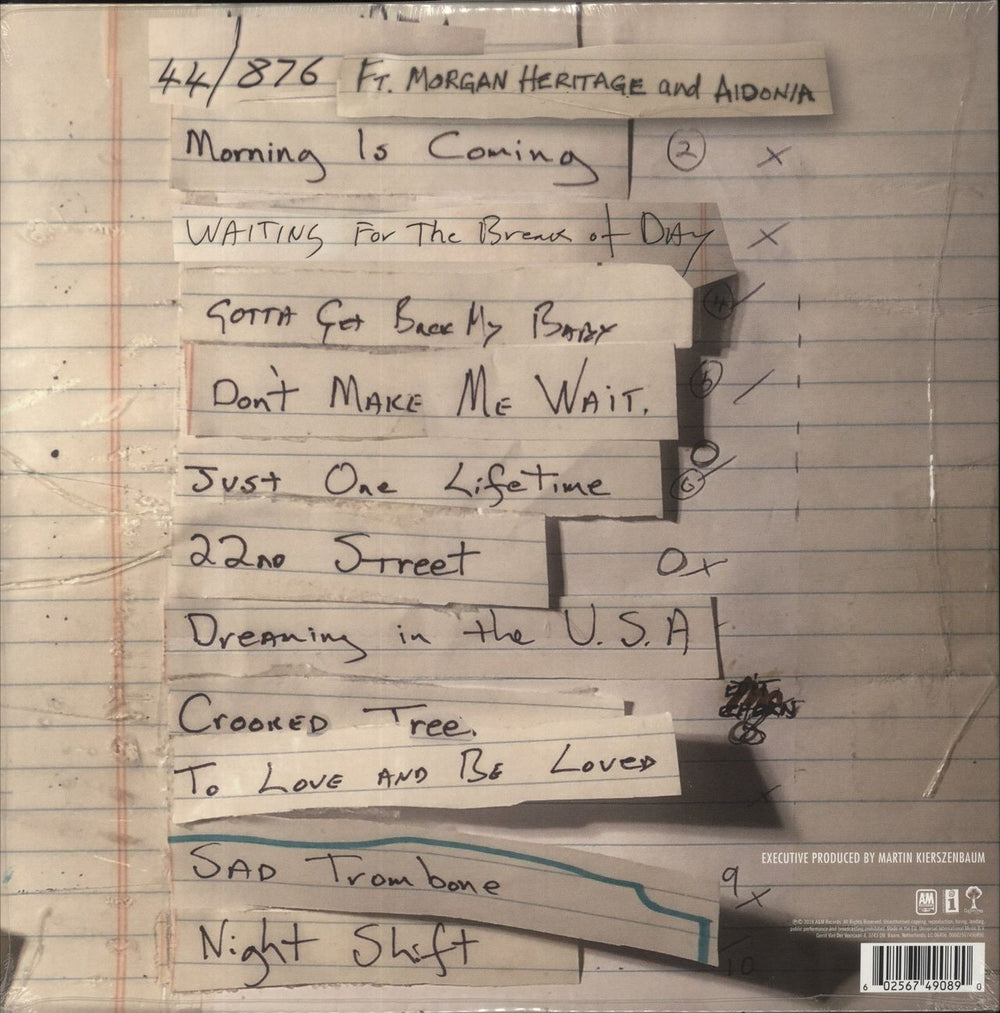 44/876 FT. MORGAN HERITAGE and AIDONIA
Morning Is Coming 2 x
WAITING For The Break of DAY x
GOTTA Get Back My BABY 4
Don't MAKE ME WAIT. 6
Just One Lifetime 0
6
22ND Street 0x
Dreaming in the U.S.A
CROOKED Tree.
8
To LOVE AND BE LOVED x
EXECUTIVE PRODUCED BY MARTIN KIERSZENBAUM
SAD Trombone 9 x
AM i
Night Shift 10
6 02567 49089 0